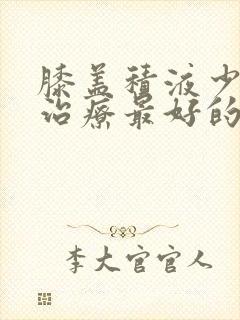 膝盖积液少
治疗最好的
李大官官人